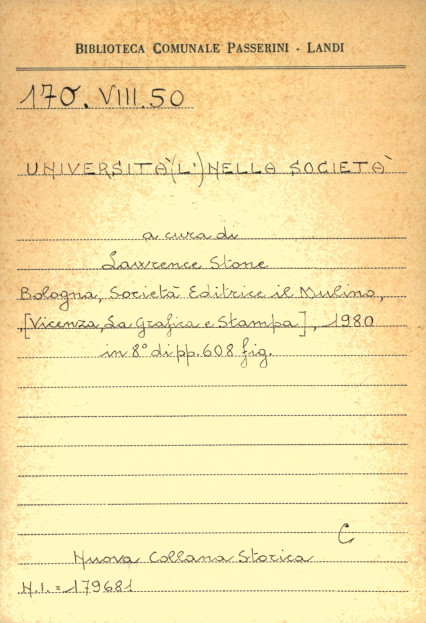 BIBLIOTECA COMUNALE PASSERINI - LANDI
170.VIII.50
UNIVERSITÀ (L') NELLA SOCIETÀ
a cura di
Lawrence Stone
Bologna, Società Editrice il Mulino,
[Vicenza, La Grafica e Stampa], 1980
in 8° di pp. 608 fig.
C
Nuova Collana Storica
N.I. = 179681